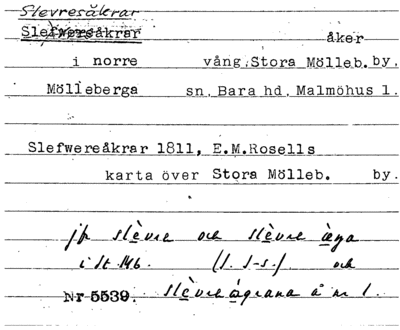 Slevresåkrar
Slefwereåkrar åker
i norre vång. Stora Mölleb. by.
Mölleberga sn. Bara hd. Malmöhus l.
Slefwereåkrar 1811, E.M.Rosells
karta över Stora Mölleb. by.
jfr slèvre och slèvre
i St. Mb. (l. l-s.) och
Nr 5539. slèvreàgrana å nr 1.